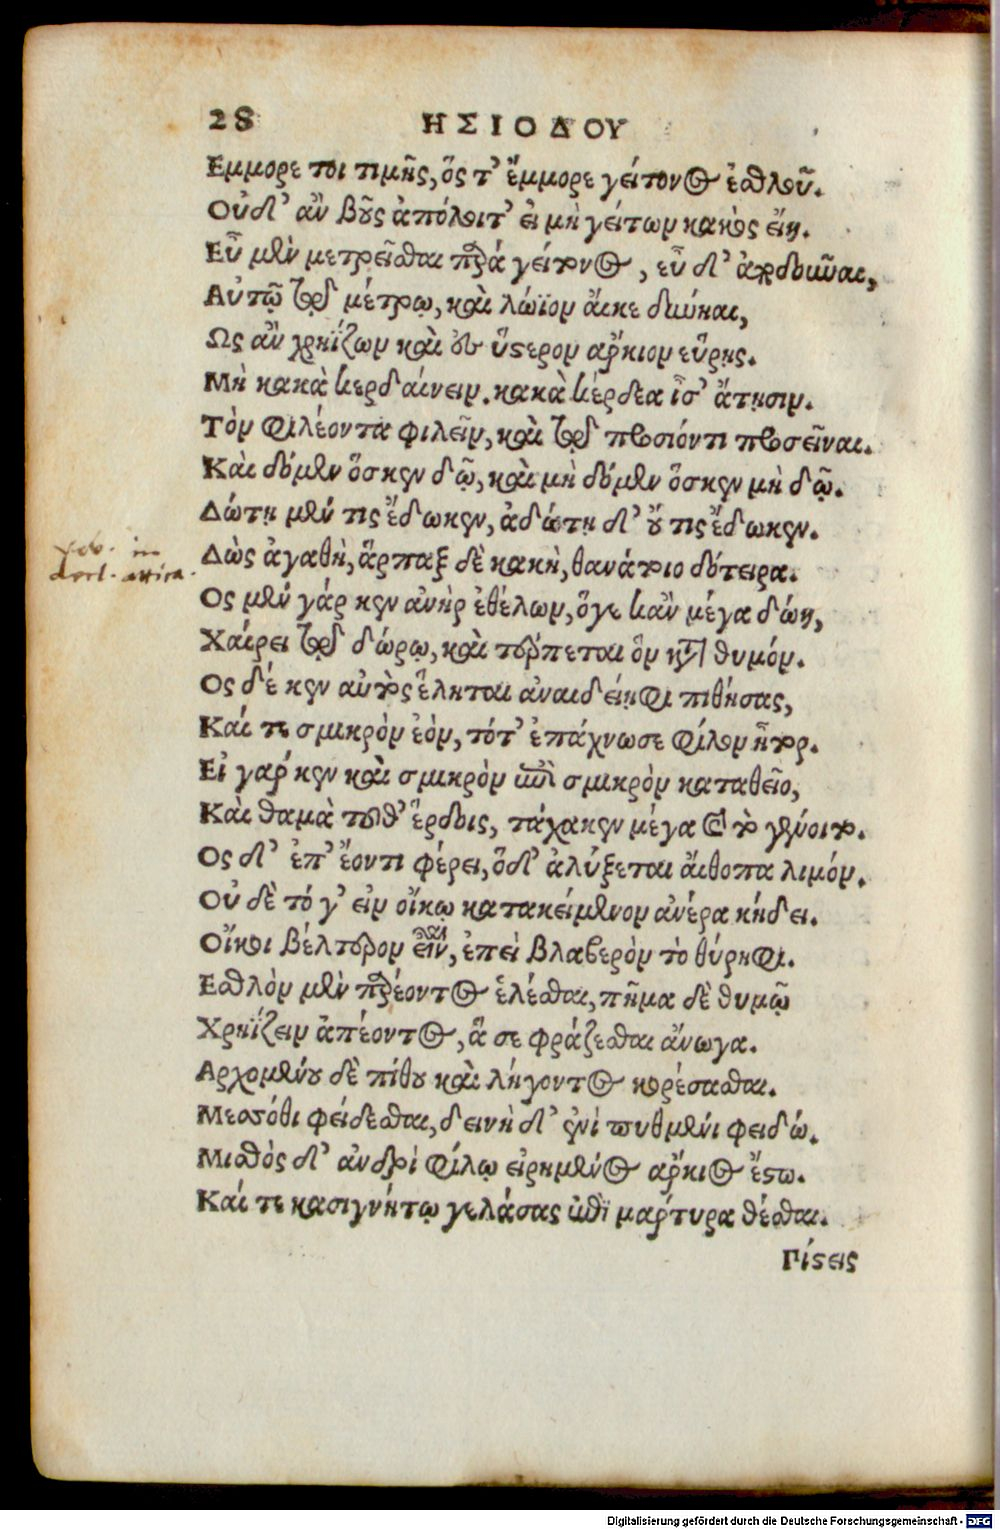 28 ΗΣΙΟΔΟΥ
Εμμορε τοι τιμῆς, ὅς τ' ἔμμορε γείτονος ἐσθλοῦ.
Οὐδ' ἂν βοῦς ἀπόλοιτ' εἰ μὴ γείτων κακὸς εἴη.
Εὖ μὲν μετρεῖσθαι παρὰ γείτονος, εὖ δ' ἀποδοῦναι,
Αὐτῷ τῷ μέτρῳ, καὶ λώϊον αἴκε δύνηαι,
Ως ἂν χρηΐζων καὶ ἐς ὕστερον ἄρκιον εὕρῃς.
Μὴ κακὰ κερδαίνειν. κακὰ κέρδεα ἶσ' ἄτῃσιν.
Τὸν φιλέοντα φιλεῖν, καὶ τῷ προσιόντι προσεῖναι.
Καὶ δόμεν ὅς κεν δῷ, καὶ μὴ δόμεν ὅς κεν μὴ δῷ.
Δώτῃ μέν τις ἔδωκεν, ἀδώτῃ δ' οὔ τις ἔδωκεν.
Δὼς ἀγαθὴ, ἅρπαξ δὲ κακὴ, θανάτοιο δότειρα.
in
attica.
Ος μὲν γάρ κεν ἀνὴρ ἐθέλων, ὅγε κἂν μέγα δώῃ,
Χαίρει τῷ δώρῳ, καὶ τέρπεται ὃν κατὰ θυμόν.
Ος δέ κεν αὐτὸς ἕληται ἀναιδείηφι πιθήσας,
Καί τε σμικρὸν ἐὸν, τότ' ἐπάχνωσε φίλον ἦτορ.
Εἰ γάρ κεν καὶ σμικρὸν ἐπὶ σμικρὸν καταθεῖο,
Καὶ θαμὰ τοῦθ' ἕρδοις, τάχα κεν μέγα καὶ τὸ γένοιτο.
Ος δ' ἐπ' ἐόντι φέρει, ὅδ' ἀλύξεται αἴθοπα λιμόν.
Οὐδὲ τό γ' εἰν οἴκῳ κατακείμενον ἀνέρα κήδει.
Οἴκοι βέλτερον εἶναι, ἐπεὶ βλαβερὸν τὸ θύρηφι.
Εσθλὸν μὲν παρεόντος ἑλέσθαι, πῆμα δὲ θυμῷ
Χρηΐζειν ἀπέοντος, ἅ σε φράζεσθαι ἄνωγα.
Αρχομένου δὲ πίθου καὶ λήγοντος κορέσασθαι.
Μεσσόθι φείδεσθαι, δεινὴ δ' ἐνὶ πυθμένι φειδώ.
Μισθὸς δ' ἀνδρὶ φίλῳ εἰρημένος ἄρκιος ἔστω.
Καί τε κασιγνήτῳ γελάσας ἐπὶ μάρτυρα θέσθαι.
Πίστεις
Digitalisierung gefördert durch die Deutsche Forschungsgemeinschaft - DFG